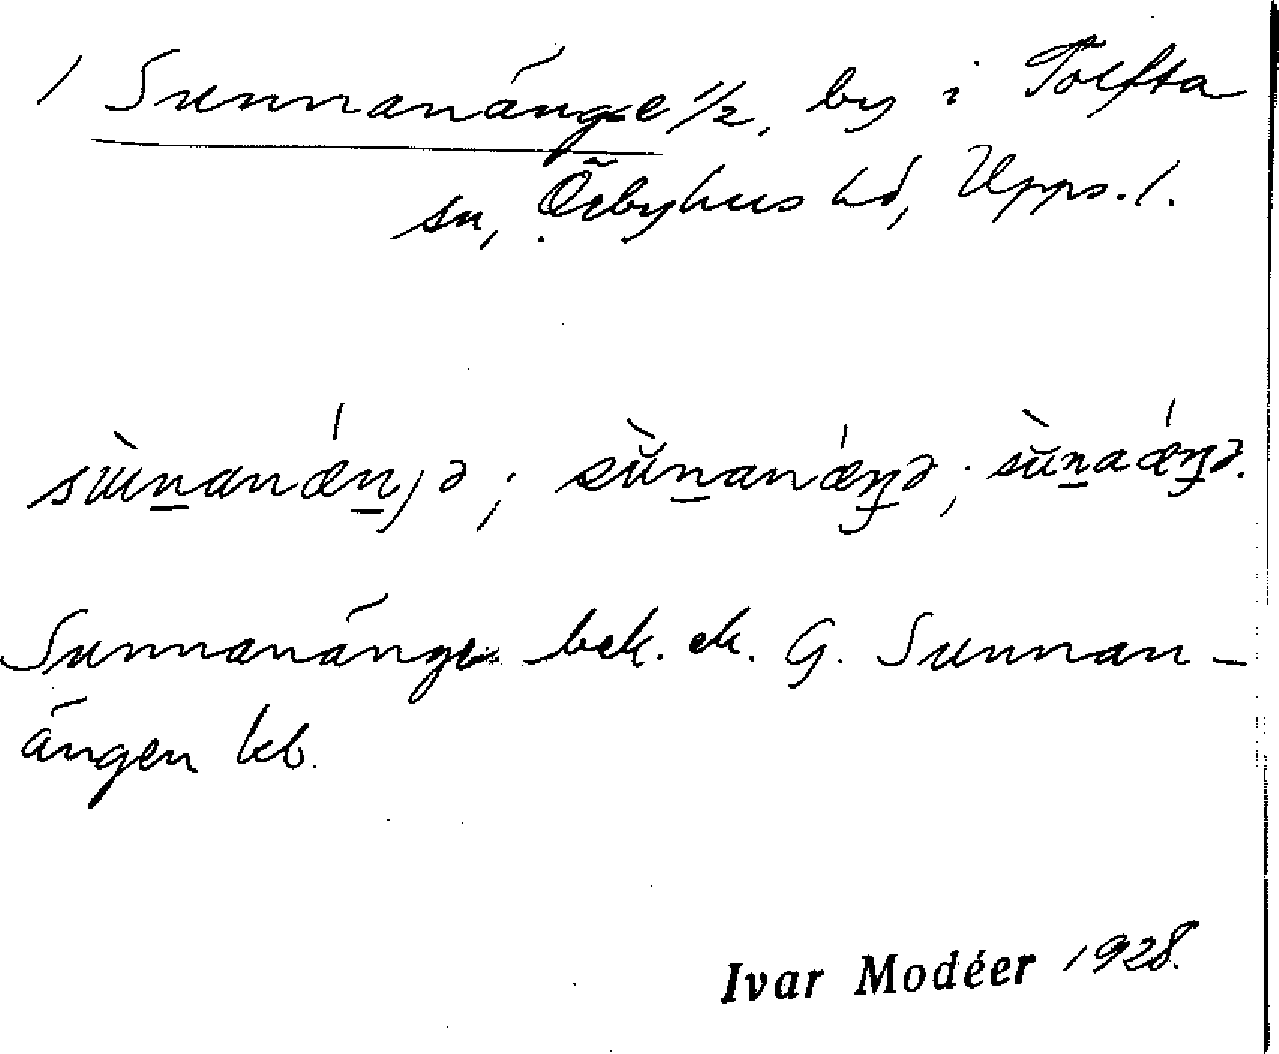 1 Sunnanänge 1/2, by i Tolfta
sn, Örbyhus hd, Upps. l.
sùnanǽnȷə ; sùnanǽŋə ; sùnaǽŋə.
Sunnanänge bek. ek. G. Sunnan-
ängen kb.
Ivar Modéer 1928.